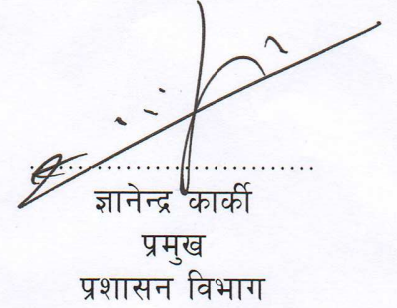 ज्ञानेन्द्र कार्की
प्रमुख
प्रशासन विभाग